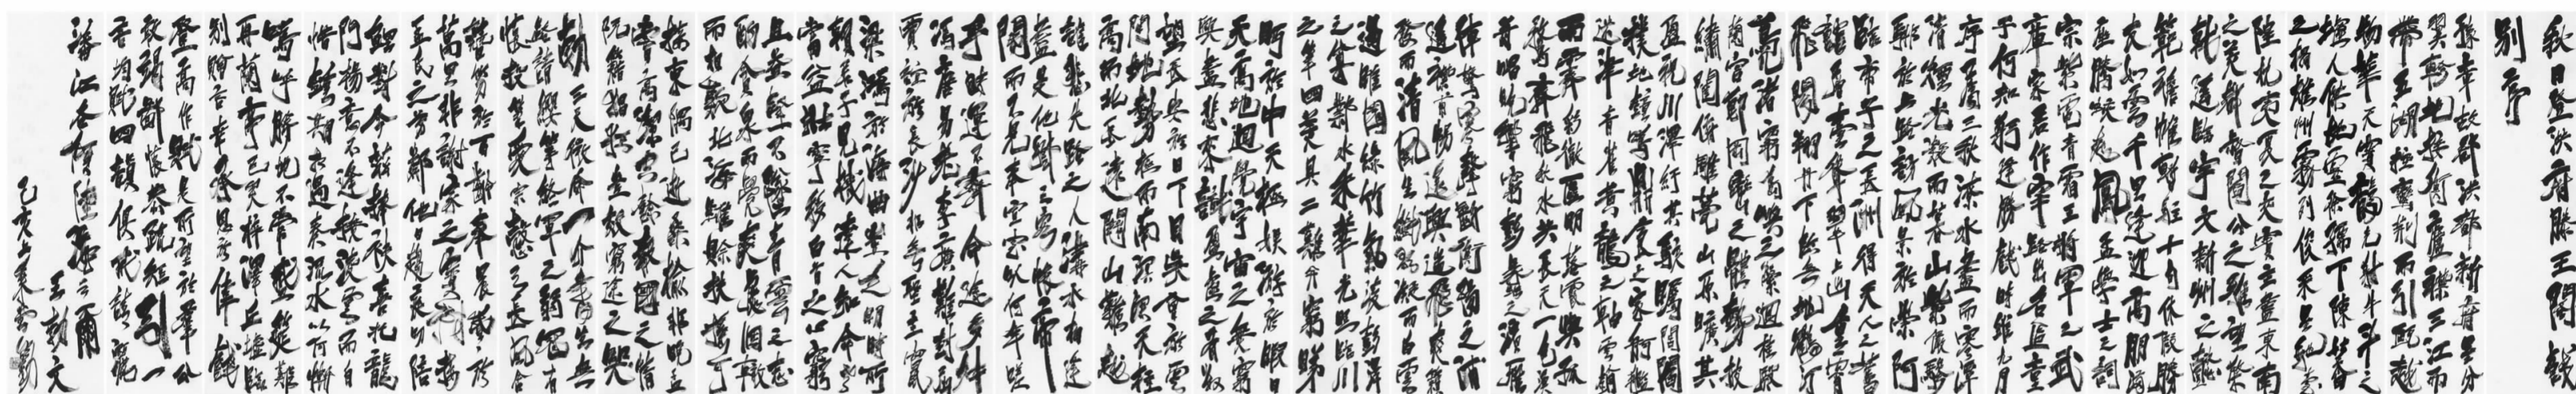 秋日登洪府滕王閣餞
別序
豫章故郡洪都新府星分
翼軫地接衡廬襟三江而
帶五湖控蠻荊而引甌越
物華天寶龍光射斗牛之
墟人傑地靈徐孺下陳蕃
之榻雄州霧列俊采星馳臺
隍枕夷夏之交賓主盡東南
之美都督閻公之雅望棨
戟遥臨宇文新州之懿
範襜帷暫駐十旬休假勝
友如雲千里逢迎高朋滿
座騰蛟起鳳孟學士之詞
宗紫電青霜王將軍之武
庫家君作宰路出名區童
子何知躬逢勝餞時維九月
序屬三秋潦水盡而寒潭
清煙光凝而暮山紫儼驂
騑於上路訪風景於崇阿
臨帝子之長洲得天人之舊
館層臺聳翠上出重霄
飛閣翔丹下臨無地鶴汀
鳧渚窮島嶼之縈迴桂殿
蘭宮即岡巒之體勢披
繡闥俯雕甍山原曠其
盈視川澤紆其駭矚閭閻
撲地鐘鳴鼎食之家舸艦
迷津青雀黃龍之軸雲銷
雨霽彩徹區明落霞與孤
鶩齊飛秋水共長天一色漁
舟唱晚響窮彭蠡之濱雁
陣驚寒聲斷衡陽之浦
遥襟甫暢逸興遄飛爽籟
發而清風生纖歌凝而白雲
遏睢園綠竹氣淩彭澤
之樽鄴水朱華光照臨川
之筆四美具二難并窮睇
眄於中天極娛遊於暇日
天高地迥覺宇宙之無窮
興盡悲來識盈虛之有數
望長安於日下目吳會於雲
間地勢極而南溟深天柱
高而北辰遠關山難越
誰悲失路之人溝水相逢
盡是他鄉之客懷帝
閽而不見奉宣室以何年嗟
乎時運不齊命途多舛
馮唐易老李廣難封屈
賈誼於長沙非無聖主竄
梁鴻於海曲豈乏明時所
賴君子見機達人知命老
當益壯寧移白首之心窮
且益堅不墜青雲之志
酌貪泉而覺爽處涸轍
而相歡北海雖賒扶搖可
接東隅已逝桑榆非晚孟
嘗高潔空餘報國之情
阮籍猖狂豈效窮途之哭
勃三尺微命一介書生無
路請纓等終軍之弱冠有
懷投筆愛宗愨之長風舍
簪笏於百齡奉晨昏於
萬里非謝家之寶樹接
孟氏之芳鄰他日趨庭叨陪
鯉對今茲捧袂喜托龍
門楊意不逢撫凌雲而自
惜鍾期相遇奏流水以何慚
嗚呼勝地不常盛筵難
再蘭亭已矣梓澤丘墟臨
別贈言幸承恩於偉餞
登高作賦是所望於群公
敢竭鄙懷恭疏短引一
言均賦四韻俱成請灑
潘江各傾陸海云爾
王勃文
己亥